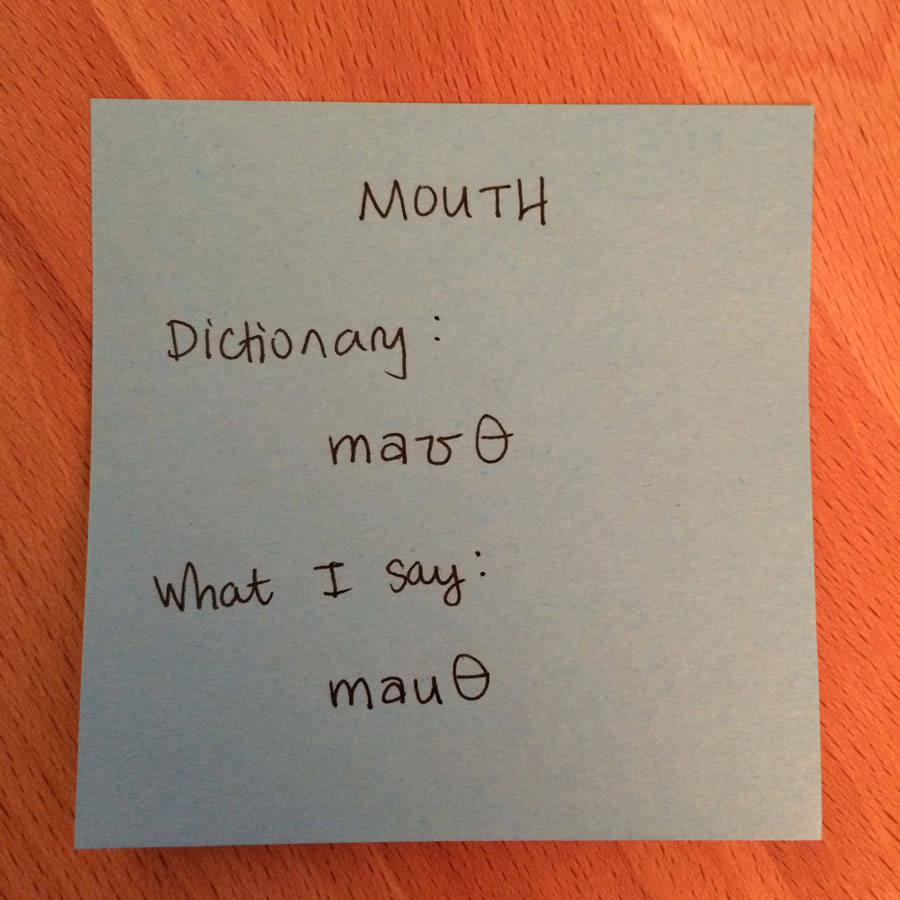 MOUTH
Dictionary:
maʊθ
What I say:
mauθ